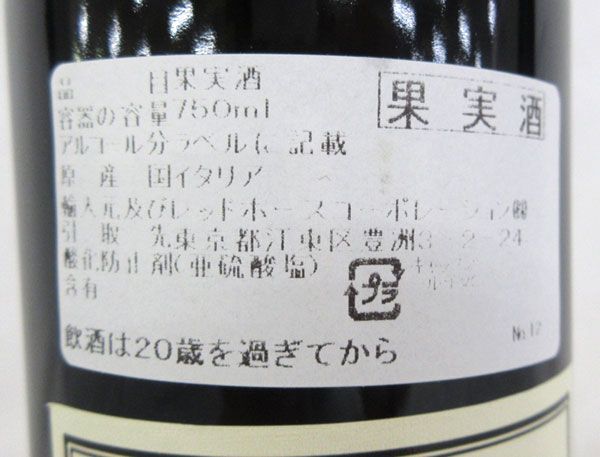 品 目果実酒
果実酒
容器の容量750ml
アルコール分ラベルに記載
原 産 国イタリア
輸入元及びレッドホースコーポレーション㈱
引 取 先東京都江東区豊洲3-2-24
酸化防止剤(亜硫酸塩)
含有
プラ
キャップ
飲酒は20歳を過ぎてから
No.12